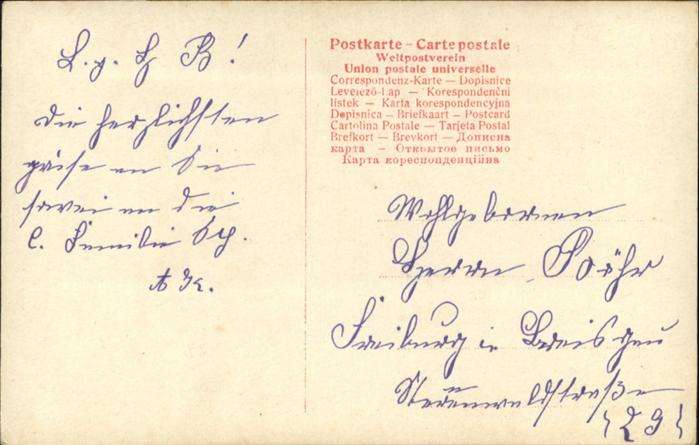 L. g. H. B!
die herzlichsten
grüße an Sie
sowie an die
l. Familie Sch.
Postkarte – Carte postale
Weltpostverein
Union postale universelle
Correspondenz-Karte — Dopisnice
Levelező-Lap — Korespondenční
listek — Karta korespondencyjna
Dopisnica — Briefkaart — Postcard
Cartolina Postale — Tarjeta Postal
Brefkort — Brevkort — Дописна
карта — Открытое письмо
Карта кореспонденційна
Wohlgeboren
Herrn Böhr
Freiburg in Breisgau
{29}